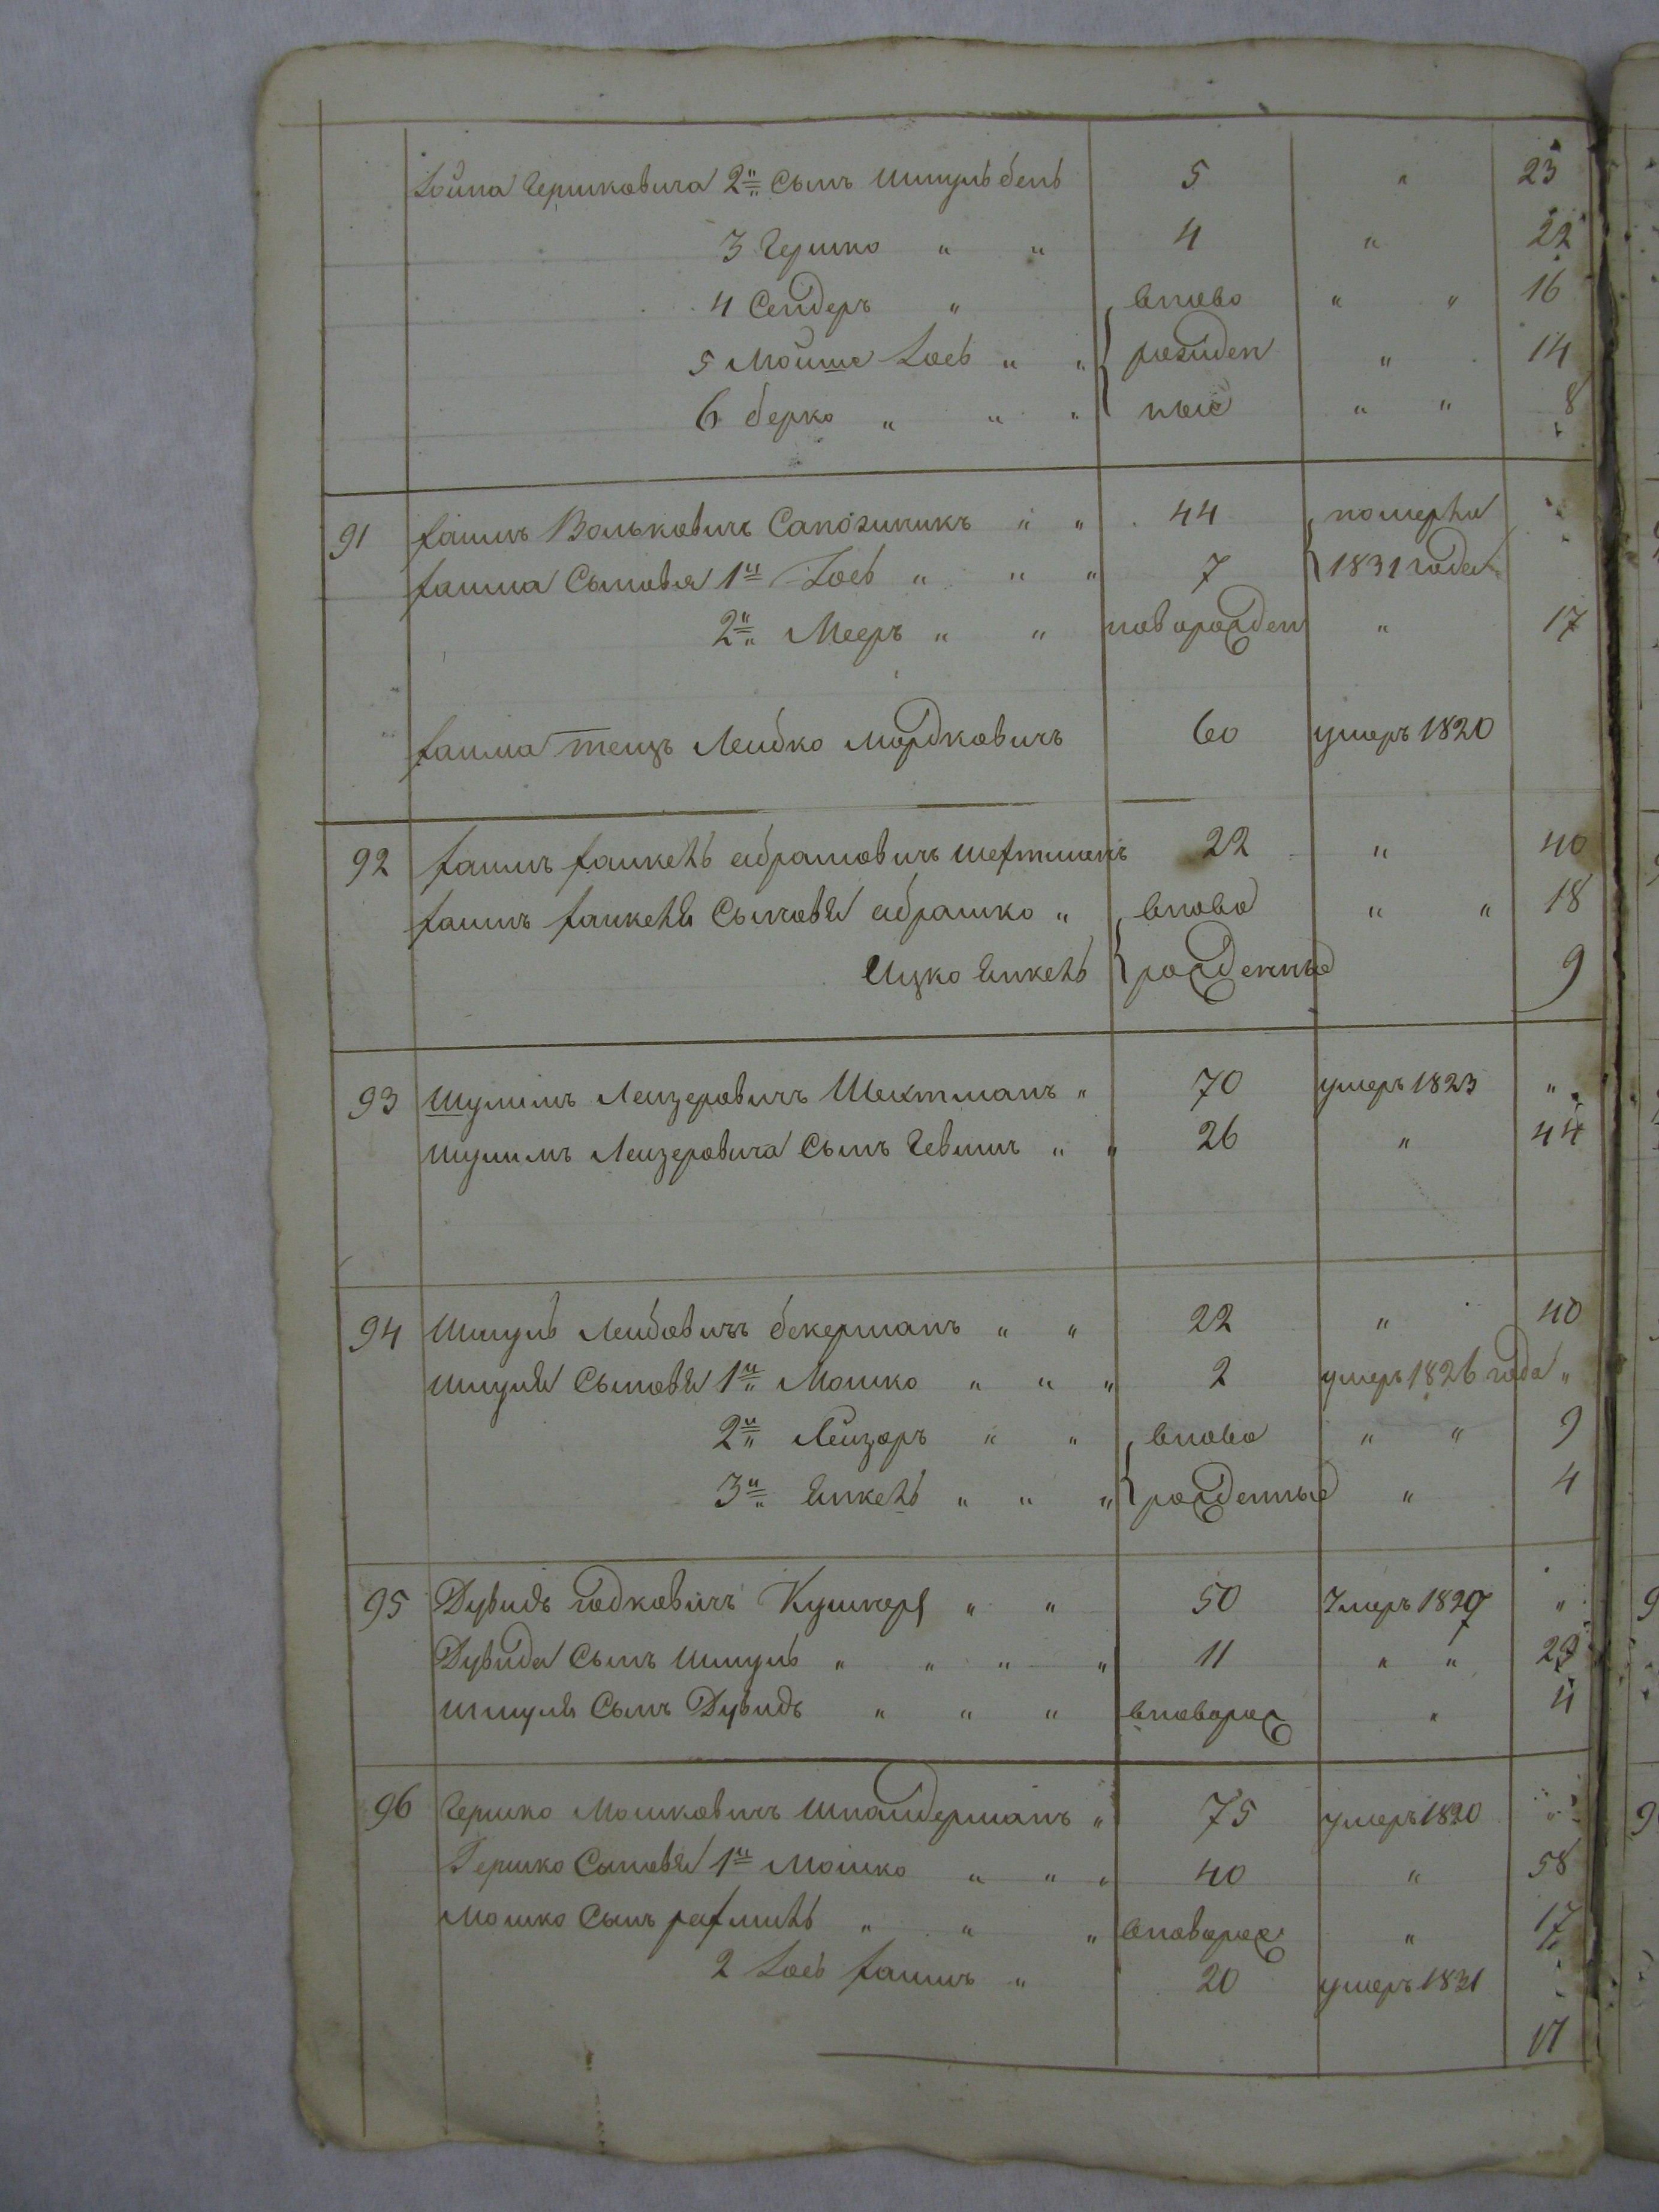 Іойна Гершковича 2й Сынъ Шмуль бень 5 " 23
3 Гершко " " 4 " 22
4 Сендеръ " вново " " 16
5 Мойше Іось " " рожден " 14
6 берко " " " ные " " 8
91 хаимъ Вольковичъ Сапожникъ " " 44 померли
хаима Сыновья 1й Іось " " " 7 1831 года
2й Мееръ " " новорожден " 17
хаима тещъ Лейбко мордковичъ 60 умеръ 1820
92 хаимъ хаикель абрамовичъ шехтманъ 22 " 40
хаимъ хаикеля Сыновья абрашко " вново " " 18
Ицко Янкель рожденные 9
93 Шулимъ Лейзеровичъ Шехтманъ " 70 умеръ 1823 "
шулимъ Лейзеровича Сынъ Гевшии " " 26 " 44
94 Шмуль Лейбовичъ бекерманъ " " 22 " 40
шмуля Сыновья 1й Мошко " " " 2 умеръ 1826 года "
2й Лейзоръ " " вново " " 9
3й Янкель " " " рожденные " 4
95 Дувидъ юдковичъ Кушнеръ " " 50 Умеръ 1827 "
Дувида Сынъ Шмуль " " " " 11 " " 29
шмуля Сынъ Дувидъ " " " вноворож " 4
96 Гершко Мошковичъ Шпайдерманъ " 75 умеръ 1820 "
Гершко Сыновья 1й Мошко " " " 40 " 58
Мошко Сынъ рахмиль " " " вноворож " 17
2 Іось хаимъ " 20 умеръ 1831
17